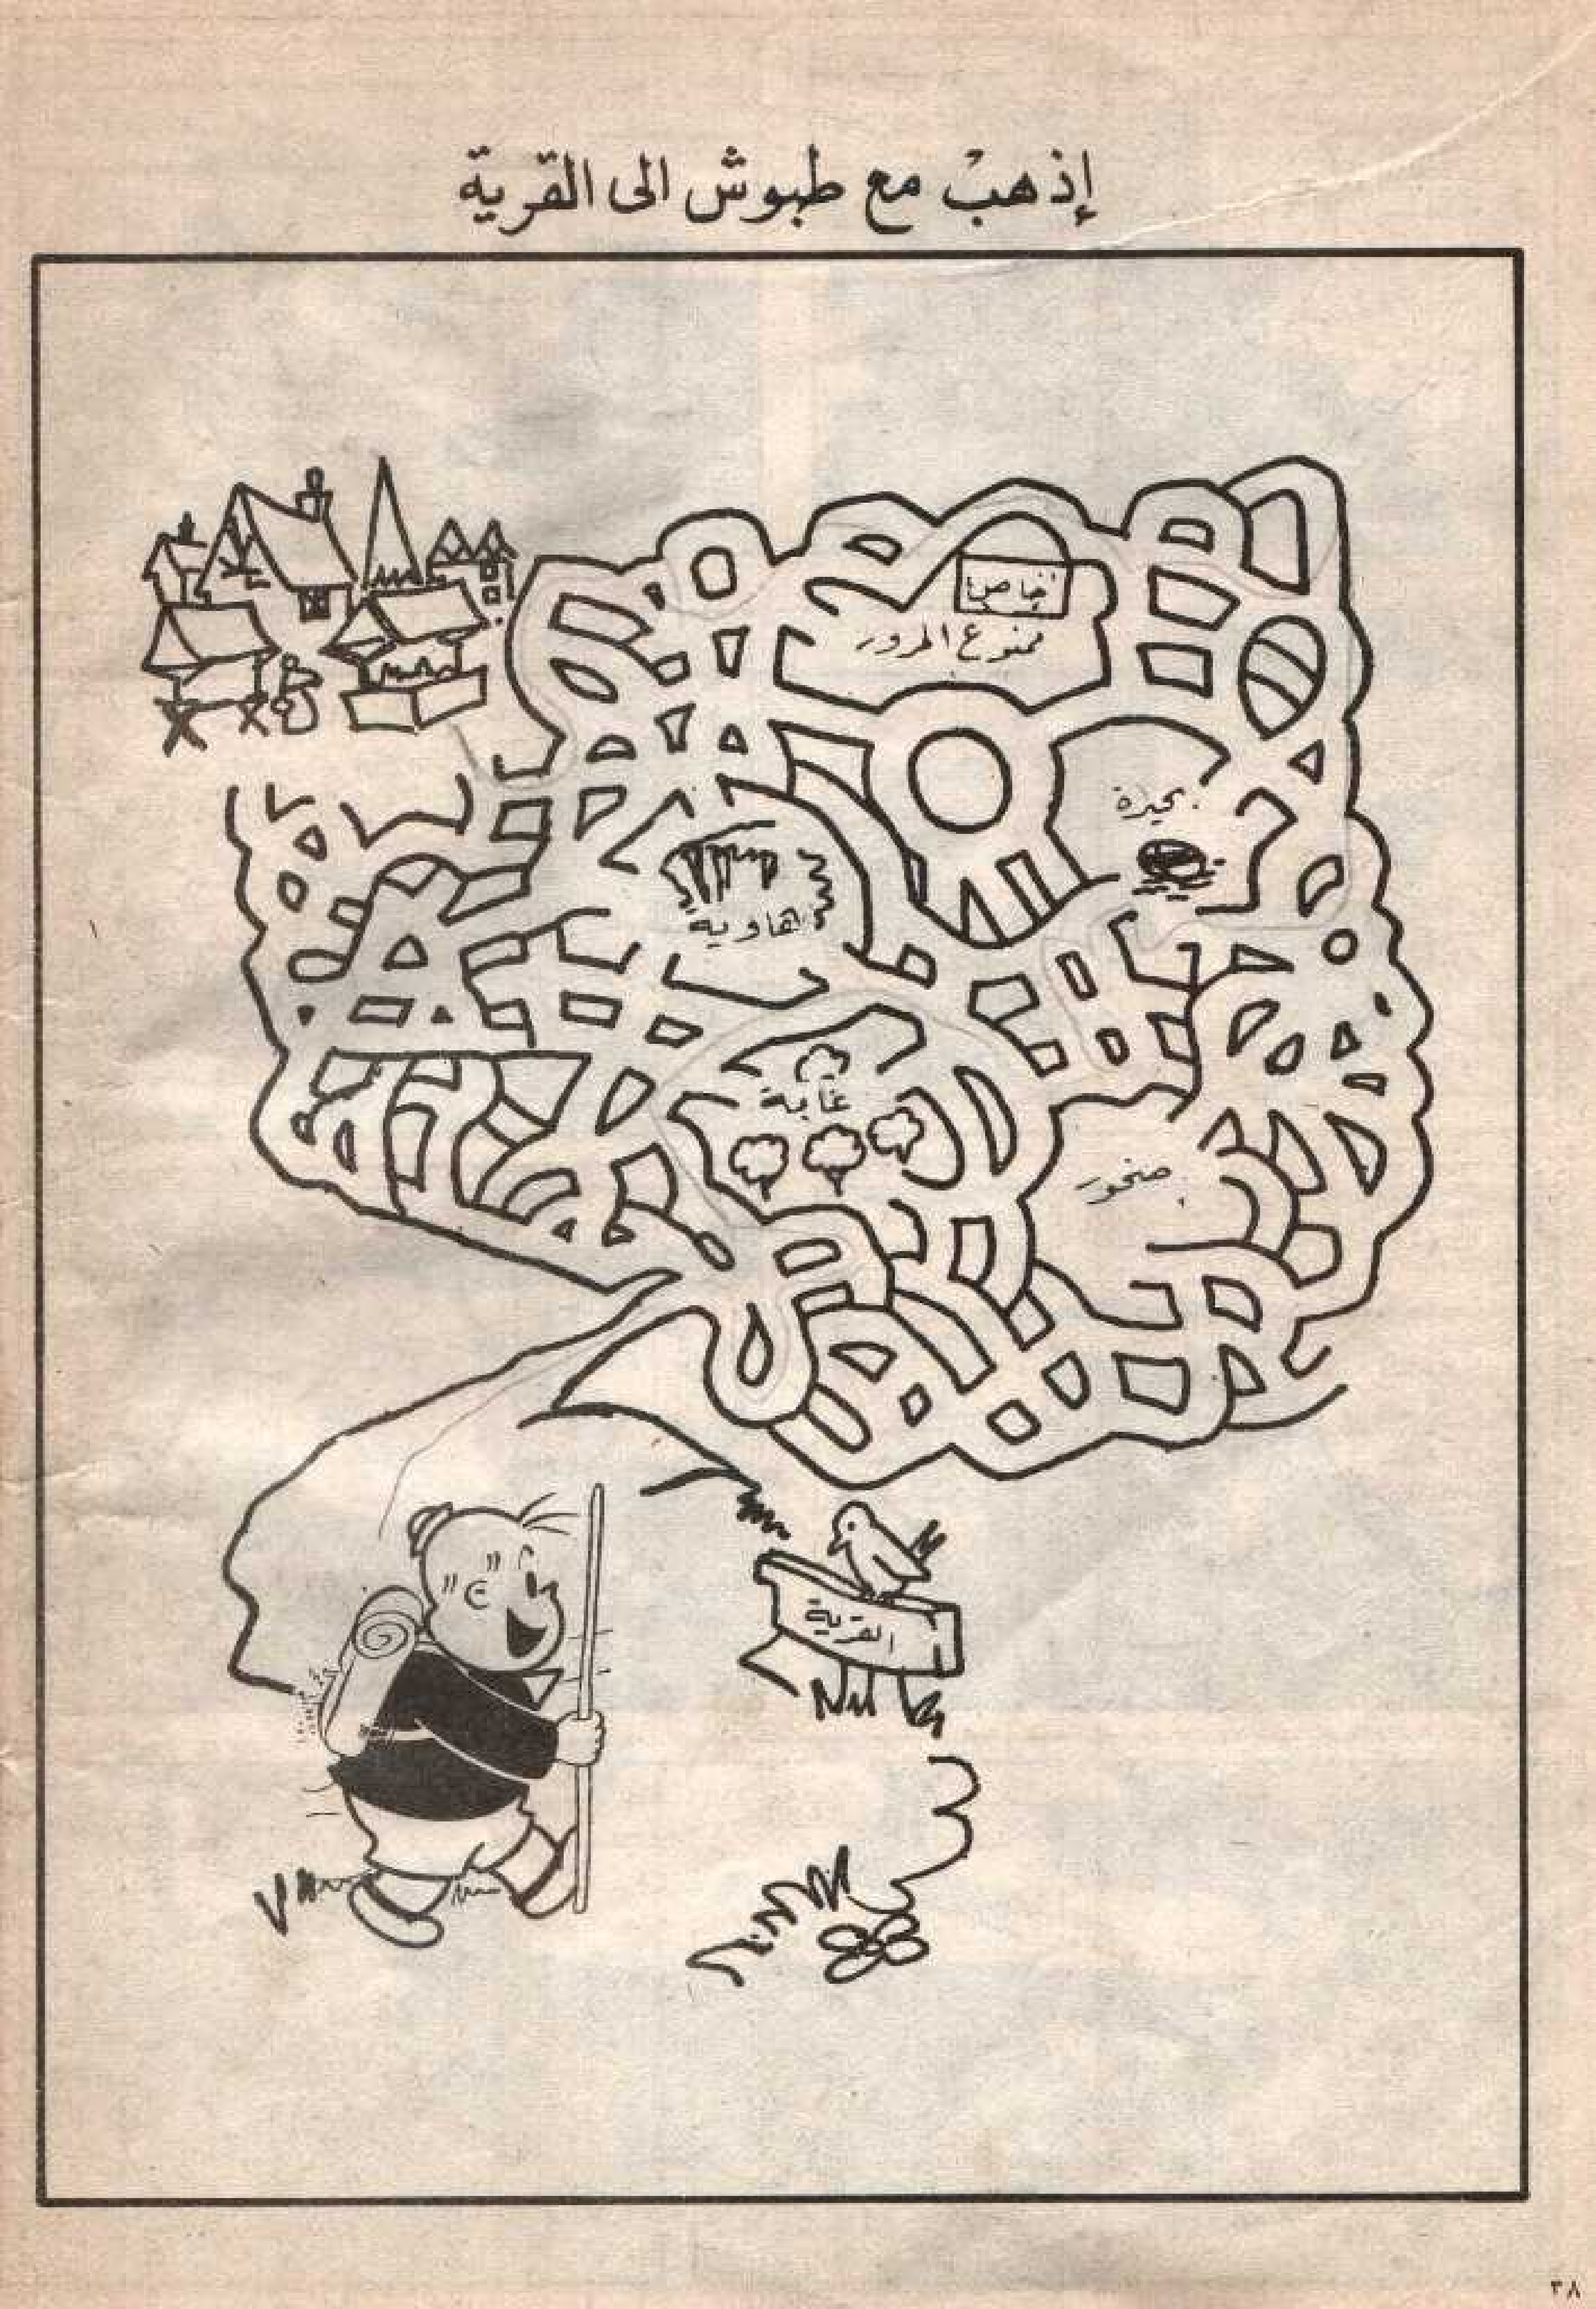 إذهبْ مع طبوش الى القرية
خاص
ممنوع المرور
بحيرة
هاوية
غابة
صخور
القرية
٣٨